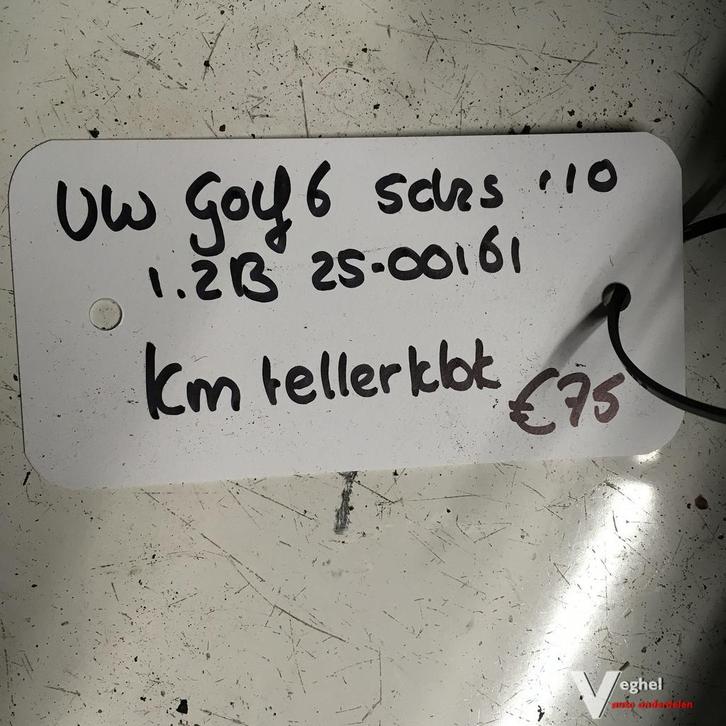 VW Golf 6 5drs '10
1.2B 25-00161
km tellerklok
€75
Veghel
auto onderdelen